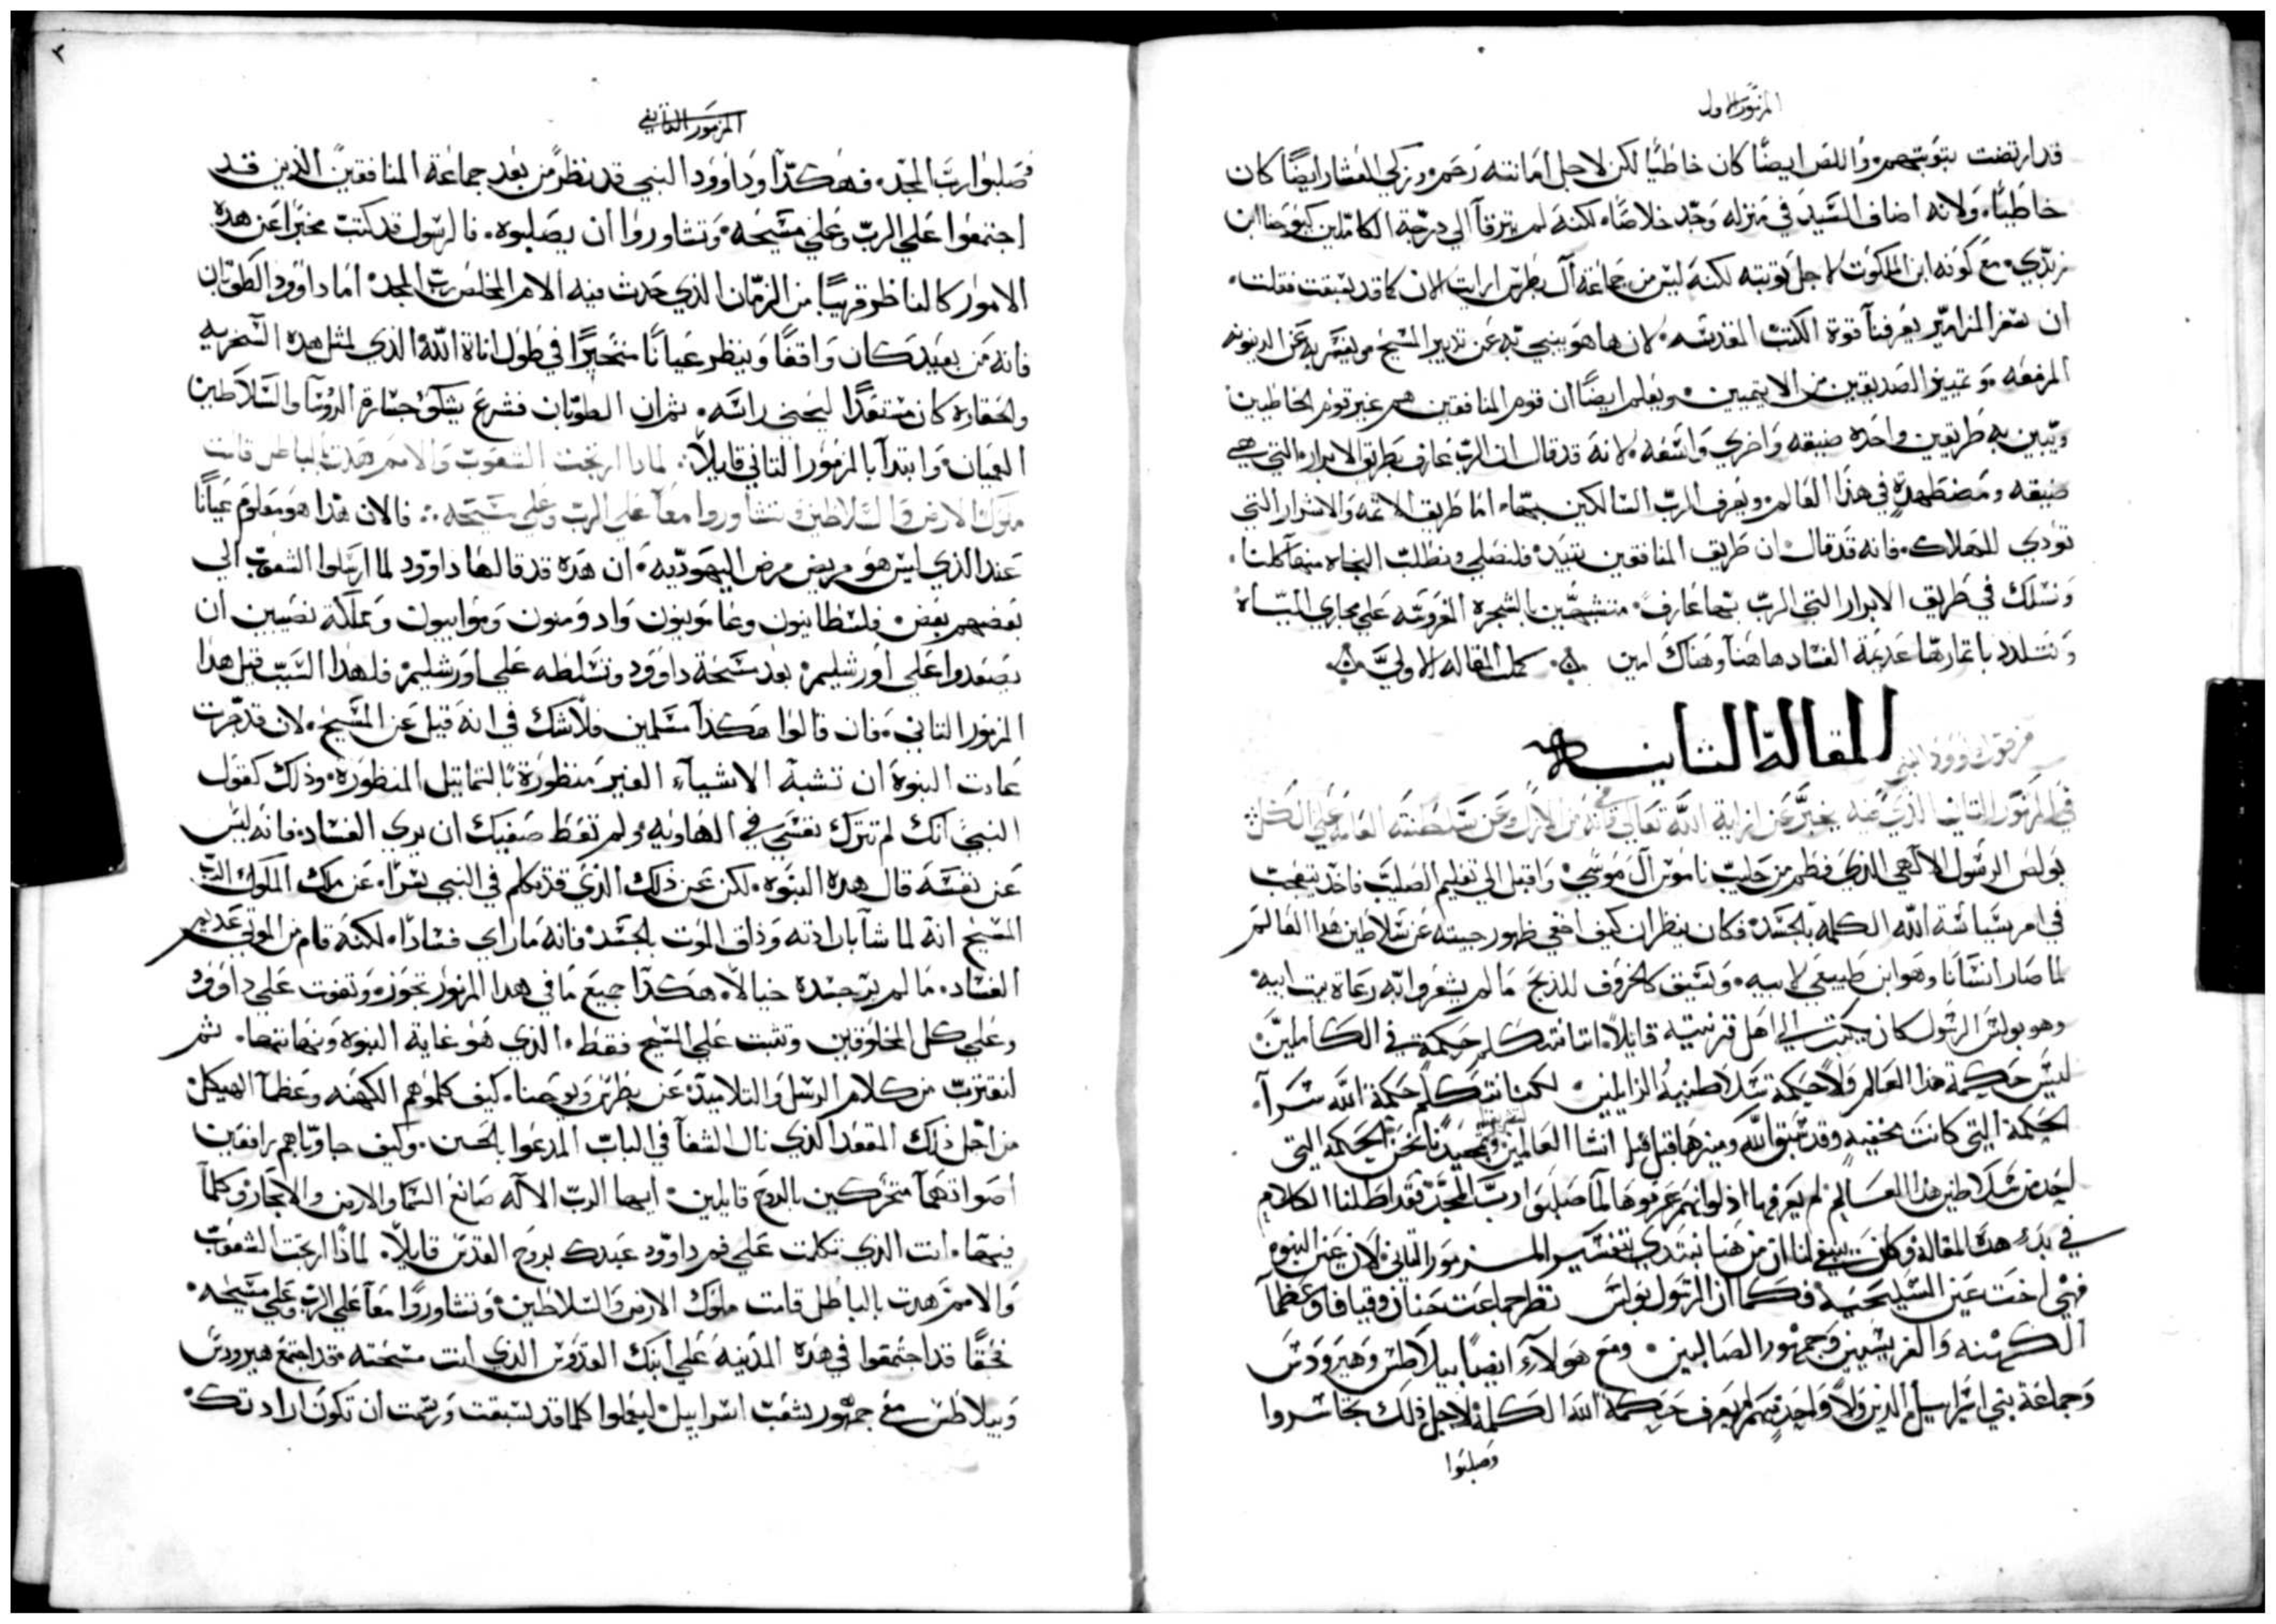 المزمور الاول
قد ارتضت بتوبتهم واللص ايضًا كان خاطيًا لكن لاجل امانته رحم وزكي العشار ايضًا كان
خاطيًا ولانه اضاف السيد في منزله وجد خلاصًا لكنه لم يترقا الي درجة الكاملين كيوحنا ابن
زبدي مع كونه ابن الملكوت لاجل توبته لكنه ليس من جماعة آل بطرس ارايت الان كما قد سبقت فقلت
ان سفر المزامير يعرفنا قوة الكتب المقدسه لان ها هو ينبي به عن تدبير المسيح عن الدينونه
المزمعه وتمييز الصديقين من الاثيمين ويعلم ايضًا ان قوم المنافقين هم غير قوم الخاطيين
ويبين به طريقين واحده ضيقه واخري واسعه لانه قد قال ان الرب عارف بطريق الابرار التي هي
ضيقه ومضطهدة في هذا العالم ويعرف الرب السالكين بها اما طريق الاثمه والاشرار التي
تودي للهلاك فانه قد قال ان طريق المنافقين تبيد فلنصلي ونطلب النجاه منها كلنا
ونسلك في طريق الابرار التي الرب بها عارف متشبهين بالشجرة المغروسه علي مجاري المياه
ونتلدد باثمارها عديمة الفساد هاهنا وهناك امين كملت المقاله الاولي
المقالة الثانيه
في المزمور الثاني الذي فيه يخبر عن ازلية الله تعالي وعن سلطنته العامه علي الكل
بولص الرسول الالهي الذي فطم من حليب ناموس آل موسي واقبل الي تعليم الصليب فاخذ يتعجب
في امر سياسة الله الكلمة بالجسد فكان ينظر ان كيف اخفي ظهور جيته عن سلاطين هذا العالم
لما صار انسانا وهو ابن طبيعي لابيه وسيق كالخروف للذبح ما لم يشعروا به رعاة بيت ابيه
وهو بولس الرسول كان يكتب الي اهل قرنتيه قايلاً اننا نتكلم حكمة في الكاملين
ليس حكمة هذا العالم ولا حكمة سلاطنيه الزايلين لكننا نتكلم حكمة الله سرآ
الحكمة التي كانت مخفيه وقد سبق الله وميزها قبل انشا العالمين وتمجيدنا نحن الحكمه التي
احد من سلاطين هذا العالم لم يعرفها اذ لو انهم عرفوها لما صلبوا رب المجد فقد اطلنا الكلام
في بدء هذه المقاله ولكن ينبغي لنا ان من هنا نبتدي بتفسير المزمور الثاني لان عين النبوه
فهي اخت عين السليحيه فكما ان الرسول بولس نظر جماعت حنان وقيافا وعظما
الكهنه والفريسيين وجمهور الصالبين ومع هولآء ايضًا بيلاطس وهيرودس
وجماعة بني اسراييل الذين ولا واحد منهم لم يعرف حكمة الله الكلمة لاجل ذلك تجاسروا
وصلبوا
المزمور الثاني
فصلبوا رب المجد فهكذا وداوود النبي قد نظر من بعد جماعة المنافقين الذين قد
اجتمعوا علي الرب وعلي مسيحه وتشاوروا ان يصلبوه فالرسول قد كتب مخبرا عن هذه
الامور كالناظر قريبًا من الزمان الذي حدث فيه الام المخلص رب المجد اما داوود الطوبان
فانه من بعيد كان واقفًا وينظر عيانًا متحيرًا في طول اناة الله الذي لمثل هذه السخريه
والحقارة كان مستعدًا ليحني راسه ثم ان الطوبان فشرع يشكو جسارة الروسا والسلاطين
العميان وابتدآ بالمزمور الثاني قايلاً لماذا ارتجت الشعوب والامم هذت بالباطل قامت
ملوك الارض والسلاطين وتشاوروا معا علي الرب وعلي مسيحه فالان هذا هو معلوم عيانًا
عند الذي ليس هو مريض مرض اليهوديه ان هذه قد قالها داوود لما ارسلوا الشعوب الي
بعضهم بعض فلسطانيون وعامونيون وادومنون وموابيون ومملكة نصيبين ان
يصعدوا علي اورشليم بعد مسحة داوود وتسلطه علي اورشليم فلهذا السبب قيل هذا
المزمور الثاني فان قالوا هكذا مسلمين فلا شك في انه قيل عن المسيح لان قد جرت
عادت النبوة ان تشبه الاشياء الغير منظورة بالتماتيل المنظورة وذلك كقول
النبي انك لم تترك نفسي في الهاويه ولم تعط صفيك ان يري الفساد فانه ليس
عن نفسه قال هذه النبوه لكن عن ذلك الذي قد تكلم في النبي سرًا عن ملك الملوك الرب
المسيح انه لما شآ بارادته وذاق الموت بالجسد فانه ما راي فسادًا لكنه قام من الموتي عديم
الفساد ما لم ير جسده خيالاً هكذا جميع ما في هذا المزمور تجوز وتفوت علي داوود
وعلي كل المخلوقين وتثبت علي المسيح فقط الذي هو غاية النبوه ونهايتها ثم
لنقترب من كلام الرسل والتلاميذ عن بطرس ويوحنا كيف كلموهم الكهنه وعظمآ الهيكل
من اجل ذلك المقعد الذي نال الشفآ في الباب المدعوا الحسن وكيف جاوباهم رافعين
اصواتهما متحركين بالروح قايلين ايها الرب الاله صانع السما والارض والابحار وكلما
فيها انت الذي تكلمت علي فم داوود عبدك بروح القدس قايلاً لماذا ارتجت الشعوب
والامم هذت بالباطل قامت ملوك الارض والسلاطين وتشاوروا معًا علي الرب وعلي مسيحه
فحقًا قد اجتمعوا في هذه المدينه علي ابنك القدوس الذي انت مسحته فقد اجتمع هيرودس
وبيلاطس مع جمهور شعب اسراييل ليفعلوا كلما قد سبقت ورسمت ان تكون ارادتك